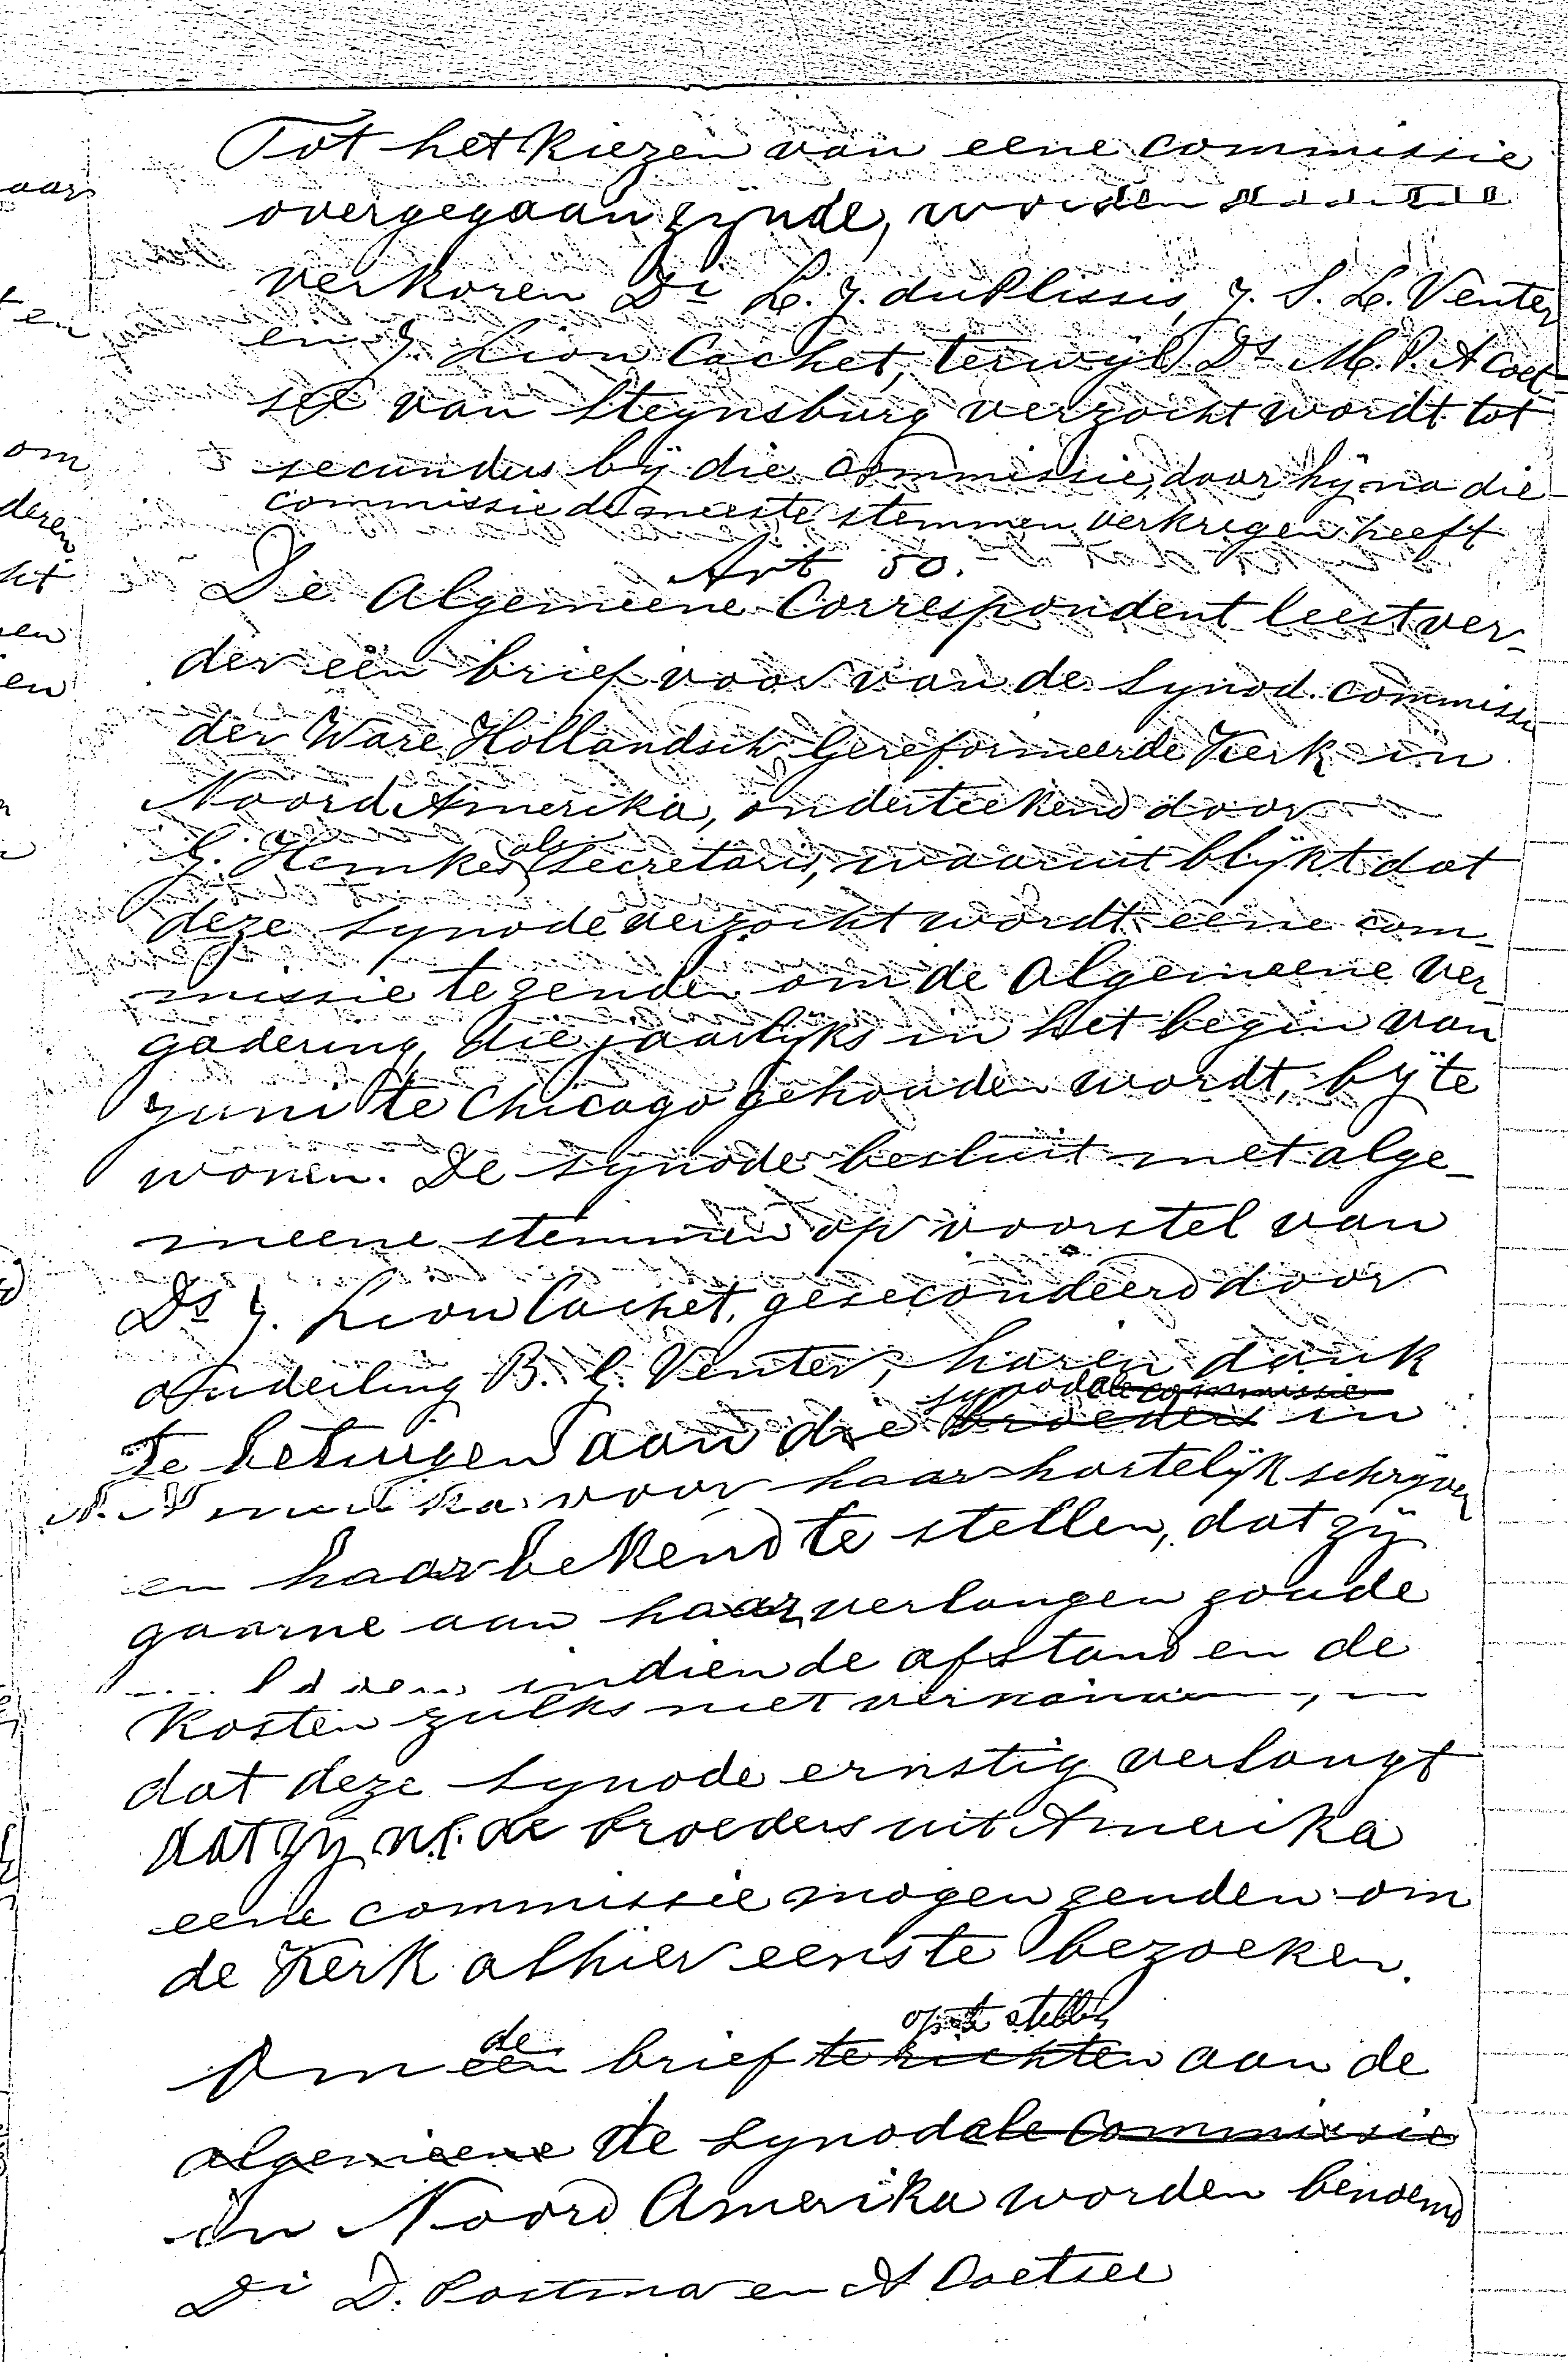 Tot het kiezen van eene commissie
overgegaan zynde, worden
verkoren Di L. J. du Plissis, J. S. L. Venter
en J. Lion Cachet, terwÿl Ds M. P. A Coet-
see van Steynsburg verzocht wordt tot
secundus bÿ die commissie, daar hÿ na die
commissie de meeste stemmen verkregen heeft
Art 50.
De Algemeene Correspondent leest ver-
der eën brief voor van de Synod. commissi
der Ware Hollandsch Gereformeerde Kerk in
Noord Amerika, onderteekend door
G. Hemkes als Secretaris, waaruit blÿkt dat
deze synode verzocht wordt eene com-
missie te zenden om de Algemeene ver-
gadering, die jaarlÿks in het begin van
Juni te Chicago gehouden wordt, bÿ te
wonen. De synode besluit met alge-
meene stemmen op voorstel van
Ds J. Lion Cachet, gesecondeerd door
Ouderling B. G. Venter, haren dank
synodale commissie
te betuigen aan die broeders in
N. Amerika voor haar hartelÿk schrÿven
en haar bekend te stellen, dat zÿ
gaarne aan haar verlangen zoude
indien de afstand en de
Kosten zulks niet
dat deze Synode ernstig verlangt
dat zÿ nl. de broeders uit Amerika
eene commissie mogen zenden om
de Kerk alhier eens te bezoeken.
de op te stellen
Om een brief te richten aan de
algemeene de Synodale Commissie
in Noord Amerika worden benoemd
Di D. Postma en A Coetsee
aar
ten
om
deren
ht
en
en